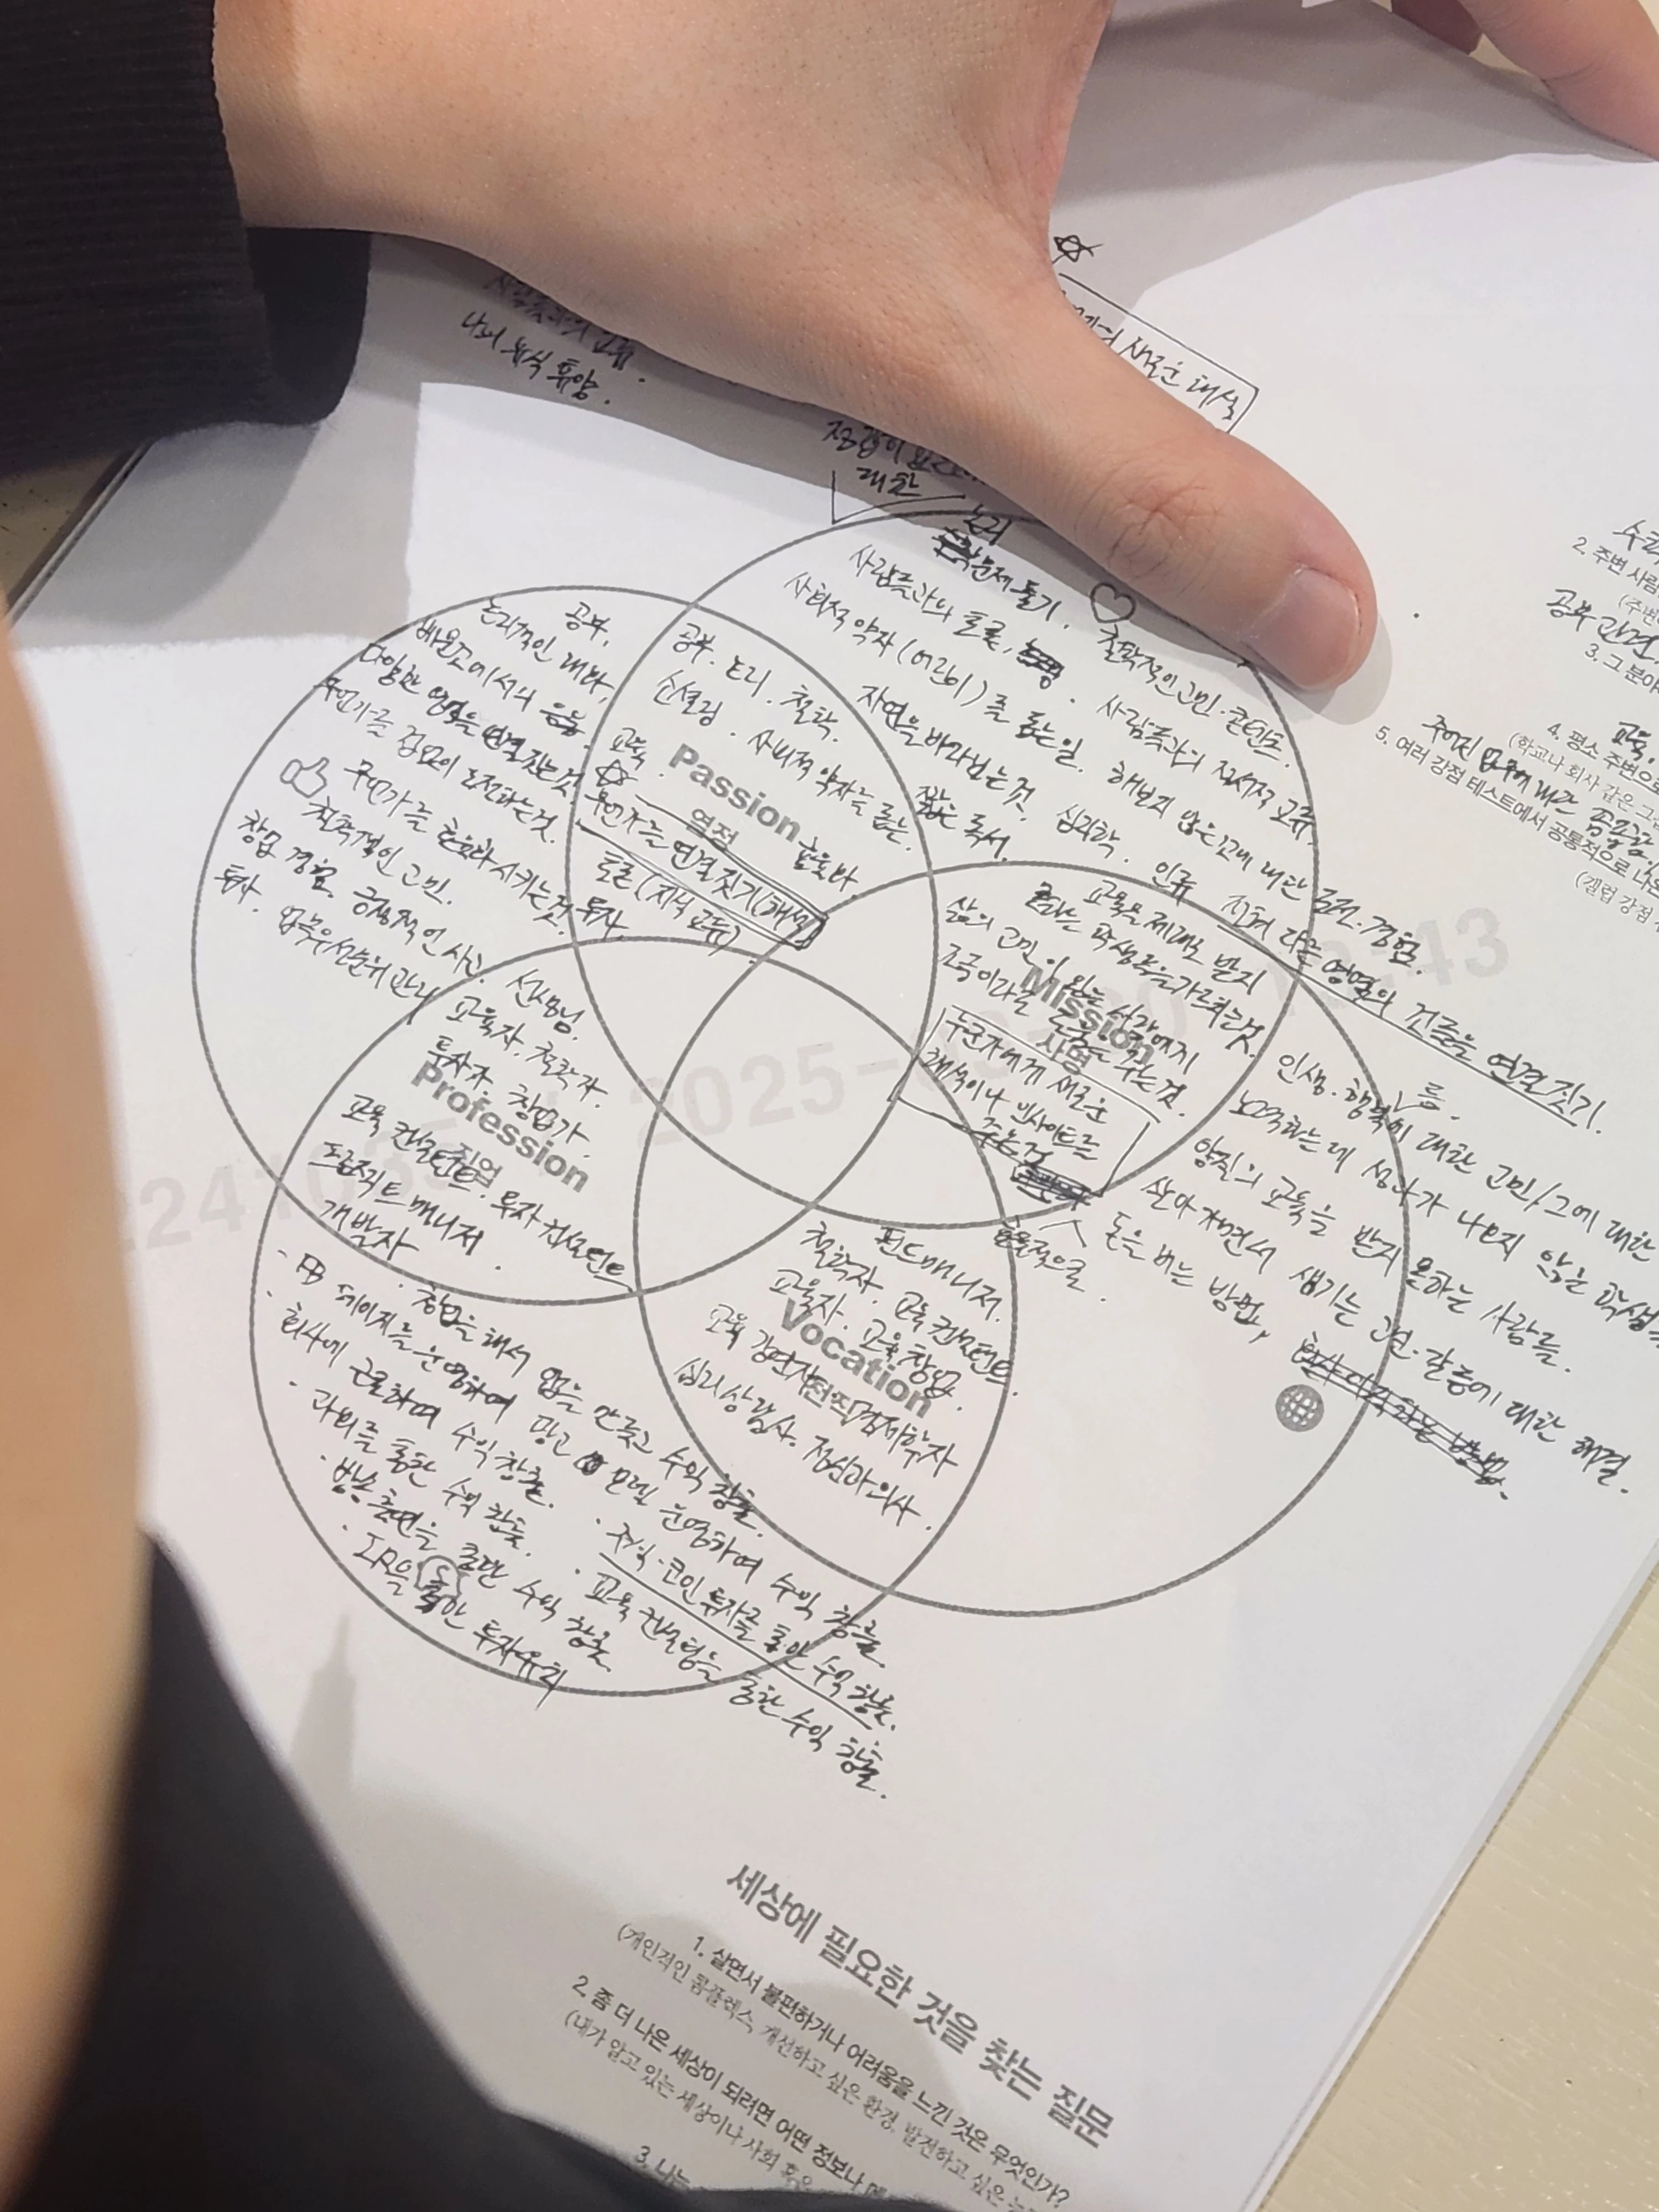 나의 휴식 휴양.
새로운 해석
대한
논리
문제 풀기.
사람들과의 토론,
사회적 약자(어린이)를 돕는 일.
자연을 바라보는 것.
짧은 독서.
철학적인 고민·콘텐츠.
사람들과의 정서적 교류.
해보지 않은 것에 대한 도전·경험.
심리학. 인류
전혀 다른 영역의 것들을 연결 짓기.
공부.
논리적인 대화,
다양한 영역을 연결 짓는 것.
무언가를 끊임없이 도전하는 것.
무언가를 효율화 시키는 것.
철학적인 고민.
창업 경험. 긍정적인 사고.
투자. 업무 우선순위 관리
공부. 논리. 철학.
소셜링. 사회적 약자를 돕는.
교육.
Passion
열정
무언가를 연결 짓기(해석)
토론(지식 교류)
교육을 제대로 받지
못하는 학생들을 가르치는 것.
삶의 고민이 있는 사람에게
조금이라도 도움을 주는 것.
Mission
사명
누군가에게 새로운
해석이나 인사이트를
주는 것
선생님.
교육자. 철학자.
투자자. 창업가.
Profession
직업
교육 컨설턴트. 투자 컨설턴트
프로젝트 매니저.
개발자
펀드매니저.
철학자. 교육 컨설턴트.
교육자. 교육 창업.
Vocation
교육 강연자
천직
경제학자
심리상담사. 정신과의사.
인생·행복에 대한 고민/그에 대한
노력하는데 성과가 나오지 않는 학생
양질의 교육을 받지 못하는 사람들.
살아가면서 생기는 고민·갈등에 대한 해결.
효율적으로 돈을 버는 방법,
· 창업을 해서 앱을 만들고 수익 창출.
· FB 페이지를 운영하여 광고 모델 운영하여 수익 창출.
· 회사에 근로하여 수익 창출.
· 주식·코인 투자를 통한 수익 창출.
· 과외를 통한 수익 창출.
· 교육 컨설팅을 통한 수익 창출.
· 방송 출연을 통한 수익 창출.
· IR을 통한 투자유치
2. 주변 사람
공부 관련,
3. 그 분야
교육,
4. 평소 주변으로
(학교나 회사 같은 그
주어진 업무에 대한 꼼꼼함,
5. 여러 강점 테스트에서 공통적으로 나온
(갤럽 강점
2025-
:43
세상에 필요한 것을 찾는 질문
1. 살면서 불편하거나 어려움을 느낀 것은 무엇인가?
(개인적인 콤플렉스, 개선하고 싶은 환경, 발전하고 싶은
2. 좀 더 나은 세상이 되려면 어떤 정보나
(내가 알고 있는 세상이나 사회 혹은
3. 나는